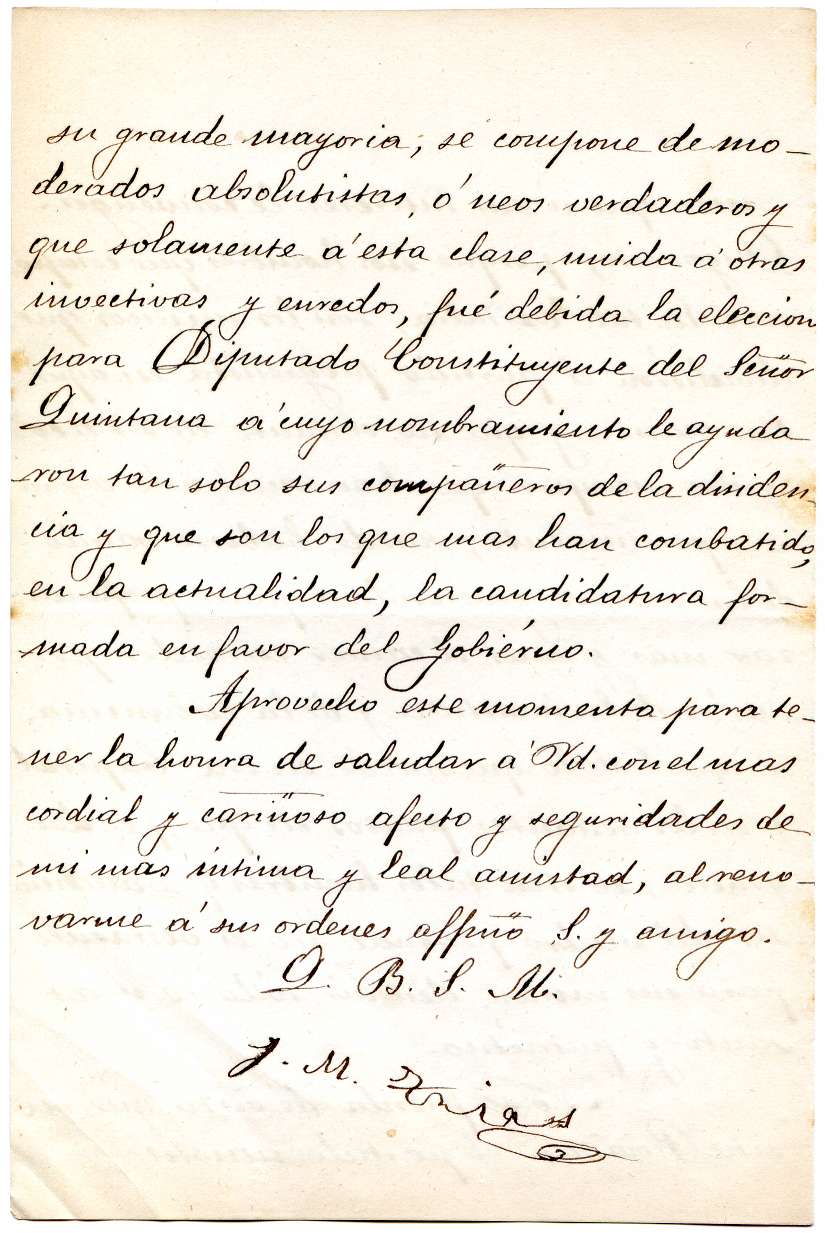 su grande mayoria, se compone de mo-
derados absolutistas, ó neos verdaderos y
que solamente á esta clase, unida á otras
invectivas y enredos, fué debida la eleccion
para Diputado Constituyente del Señor
Quintana á cuyo nombramiento le ayuda
ron tan solo sus compañeros de la disiden-
cia y que son los que mas han combatido,
en la actualidad, la candidatura for-
mada en favor del Gobiérno.
Aprovecho este momento para te-
ner la honra de saludar á Vd. con el mas
cordial y cariñoso afecto y seguridades de
mi mas íntima y leal amistad, al reno-
varme á sus ordenes affmo S. y amigo.
Q. B. S. M.
J. M.